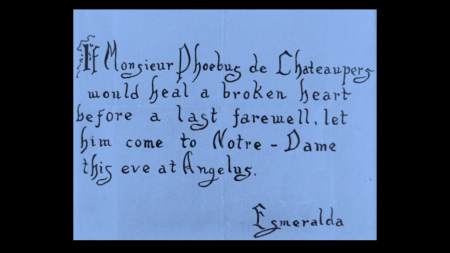 If Monsieur Phoebus de Chateaupers
would heal a broken heart
before a last farewell, let
him come to Notre-Dame
this eve at Angelus.
Esmeralda